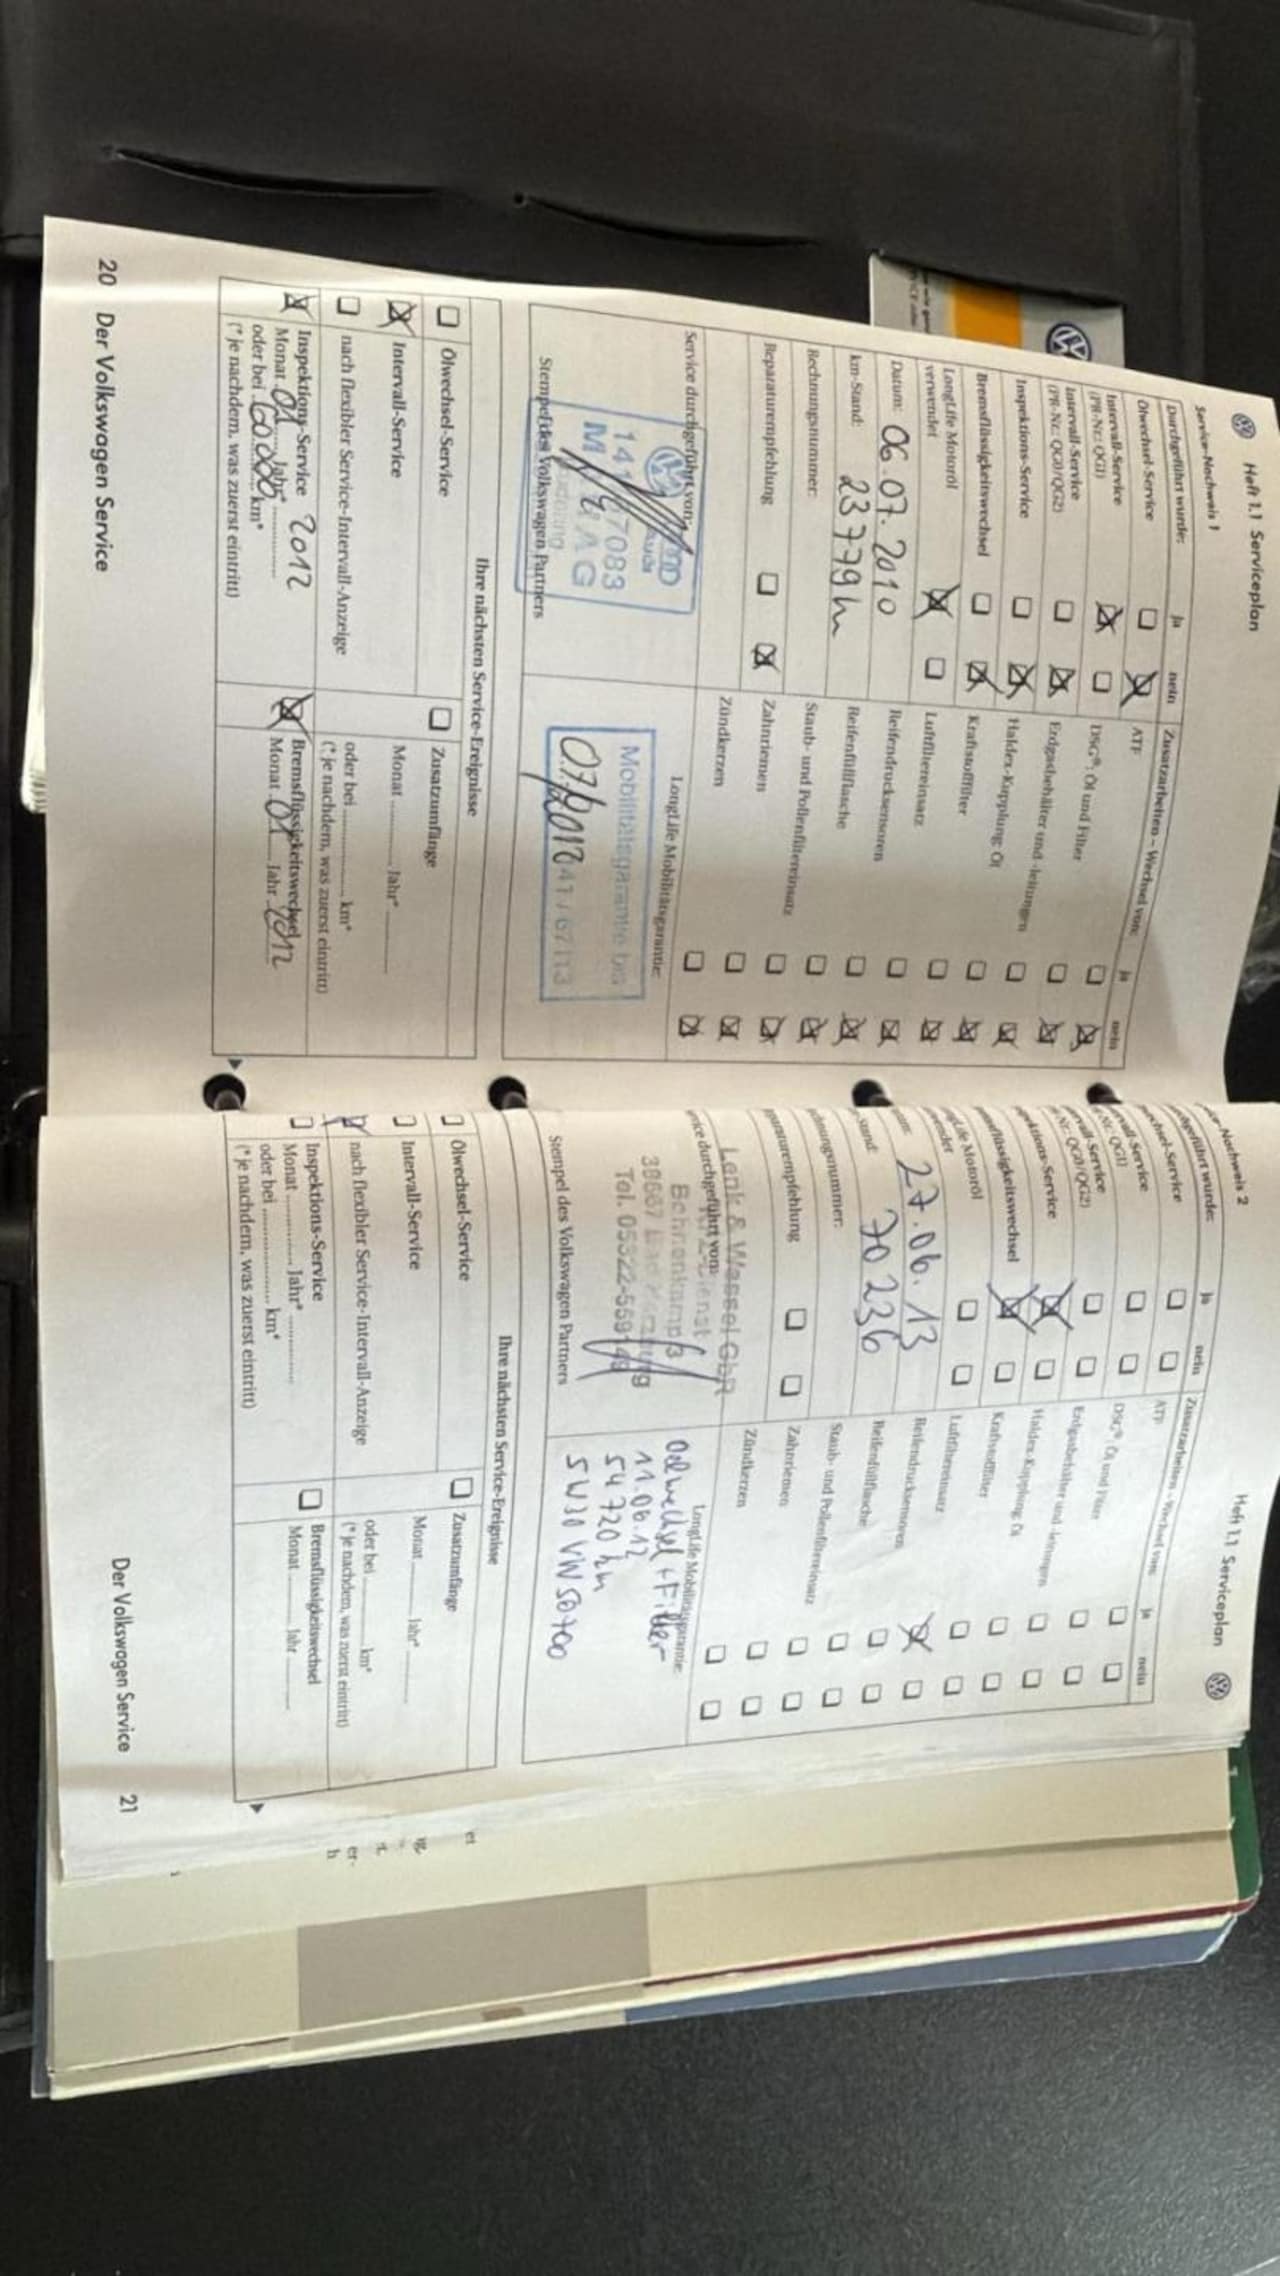 Heft 1.1 Serviceplan
Service-Nachweis 1
Durchgeführt wurde: ja nein
Ölwechsel-Service
Intervall-Service
(PR-Nr.: QG1)
Intervall-Service
(PR-Nr.: QG0/QG2)
Inspektions-Service
Bremsflüssigkeitswechsel
LongLife Motoröl
verwendet
Datum: 06.07.2010
km-Stand: 23779 km
Rechnungsnummer:
Reparaturempfehlung
Service durchgeführt von:
Stempel des Volkswagen Partners
Zusatzarbeiten – Wechsel von: ja nein
ATF
DSG®: Öl und Filter
Erdgasbehälter und -leitungen
Haldex-Kupplung: Öl
Kraftstofffilter
Luftfiltereinsatz
Reifendrucksensoren
Reifenfüllflasche
Staub- und Pollenfiltereinsatz
Zahnriemen
Zündkerzen
LongLife Mobilitätsgarantie:
Mobilitätsgarantie bis
07/2012
Ihre nächsten Service-Ereignisse
Ölwechsel-Service
Intervall-Service
nach flexibler Service-Intervall-Anzeige
Inspektions-Service
Monat 01 Jahr* 2012
oder bei 60000 km*
(*je nachdem, was zuerst eintritt)
Zusatzumfänge
Monat Jahr*
oder bei km*
(*je nachdem, was zuerst eintritt)
Bremsflüssigkeitswechsel
Monat 01 Jahr 2012
20 Der Volkswagen Service
Heft 1.1 Serviceplan
Nachweis 2
geführt wurde: ja nein
-Service
-Service
-Service
QG0/QG2)
Service
flüssigkeitswechsel
Life Motoröl
27.06.13
70236
nungsnummer:
raturempfehlung
durchgeführt von:
Lenk & Wessel GbR
Tel. 05322-559149
Stempel des Volkswagen Partners
Zusatzarbeiten – Wechsel von: ja nein
ATF
DSG®: Öl und Filter
Erdgasbehälter und -leitungen
Haldex-Kupplung: Öl
Kraftstofffilter
Luftfiltereinsatz
Reifendrucksensoren
Reifenfüllflasche
Staub- und Pollenfiltereinsatz
Zahnriemen
Zündkerzen
LongLife Mobilitätsgarantie:
Oelwechsel + Filter
11.06.12
54720 km
5W30 VW 50700
Ihre nächsten Service-Ereignisse
Ölwechsel-Service
Intervall-Service
nach flexibler Service-Intervall-Anzeige
Inspektions-Service
Monat Jahr*
oder bei km*
(*je nachdem, was zuerst eintritt)
Zusatzumfänge
Monat Jahr*
oder bei km*
(*je nachdem, was zuerst eintritt)
Bremsflüssigkeitswechsel
Monat Jahr
Der Volkswagen Service 21